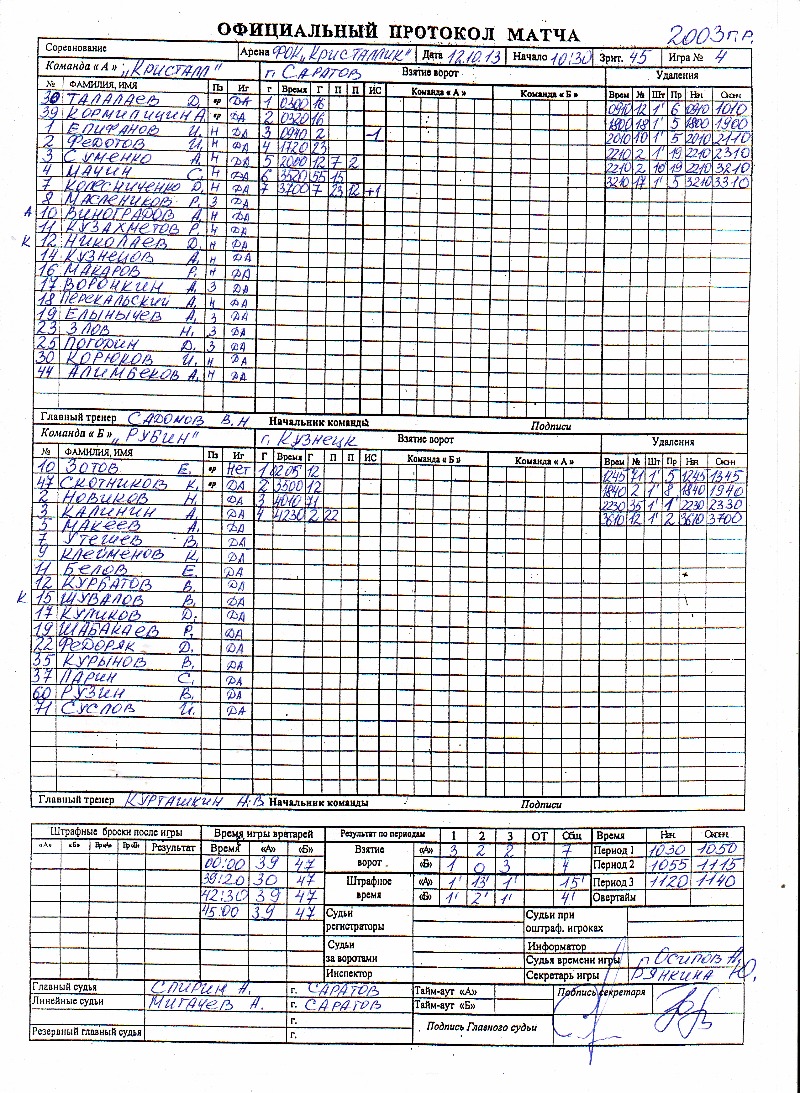 ОФИЦИАЛЬНЫЙ ПРОТОКОЛ МАТЧА 2003 г.р.
Соревнование Арена ФОК „Кристаллик" Дата 12.10.13 Начало 10:30 Зрит. 45 Игра № 4
Команда « А » „Кристалл" г. Саратов Взятие ворот Удаления
№ ФАМИЛИЯ, ИМЯ Пз Иг Г Время Г П П ИС Команда « А » Команда « Б » Врем № Шт Пр Нач Оконч
30 Талалаев Д. вр ДА 1 0300 16 0910 12 1' 6 0910 1010
39 Кормилицин А. вр ДА 2 0320 16 1800 18 1' 5 1800 1900
1 Епифанов И. Н ДА 3 0940 2 -1 2010 10 1' 5 2010 2110
2 Федотов И. Н ДА 4 1720 23 2210 2 1' 19 2210 2310
3 Суменко А. Н ДА 5 2000 12 7 2 2210 2 10' 19 2210 3210
4 Мачин С. Н ДА 6 3520 55 15 3210 17 1' 5 3210 3310
7 Колесниченко Д. Н ДА 7 3700 7 23 12 +1
8 Маслеников Р. З ДА
А 10 Виноградов А. Н ДА
11 Кузахметов Р. Н ДА
К 12 Николаев Д. Н ДА
14 Кузнецов А. Н ДА
16 Макаров Р. Н ДА
17 Воронкин А. З ДА
18 Перекальский А. Н ДА
19 Елынычев А. З ДА
23 Злов Н. З ДА
25 Погорин Д. З ДА
30 Корюков И. Н ДА
44 Алимбеков А. Н ДА
Главный тренер Садомов В.Н Начальник команды Подписи
Команда « Б » „Рубин" г. Кузнецк Взятие ворот Удаления
№ ФАМИЛИЯ, ИМЯ Пз Иг Г Время Г П П ИС Команда « Б » Команда « А » Врем № Шт Пр Нач Оконч
10 Зотов Е. вр Нет 1 02 05 12 1245 71 1' 5 1245 1345
47 Скотников К. вр ДА 2 3500 12 1840 2 1' 8 1840 1940
2 Новиков Н. ДА 3 4040 71 2230 35 1' 1' 2230 2330
3 Калинин А. ДА 4 4230 2 22 3610 12 1' 2 3610 3700
5 Макеев А. ДА
7 Утешев В. ДА
9 Клейменов К. ДА
11 Белов Е. ДА
12 Курбатов В. ДА
К 15 Шувалов В. ДА
17 Куликов Д. ДА
19 Шабакаев Р. ДА
22 Федоряк Д. ДА
35 Курынов В. ДА
37 Ларин С. ДА
60 Рузин В. ДА
71 Суслов И. ДА
Главный тренер Курташкин А.В Начальник команды Подписи
Штрафные броски после игры Время игры вратарей Результат по периодам 1 2 3 ОТ Общ Время Нач. Оконч.
«А» «Б» Результат Время «А» «Б» Взятие ворот «А» 3 2 2 7 Период 1 1030 1050
00:00 39 47 «Б» 1 0 3 4 Период 2 1055 1115
39:20 30 47 Штрафное время «А» 1' 13' 1' 15' Период 3 1120 1140
42:30 39 47 «Б» 1' 2' 1' 4' Овертайм
45:00 39 47 Судьи регистраторы Судьи при оштраф. игроках
Судьи за воротами Информатор
Судья времени игры Осипов А.
Инспектор Секретарь игры Рянкина Ю.
Главный судья Спирин А. г. Саратов Тайм-аут «А» Подпись секретаря
Линейные судьи Мигачев А. г. Саратов Тайм-аут «Б»
г.
Резервный главный судья г. Подпись Главного судьи